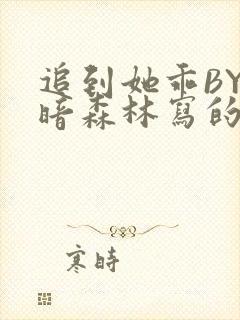 追到她乖BY
暗森林寫的
寒時